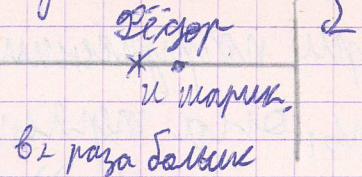 Фёдор 2
и шарик.
в 2 раза больше